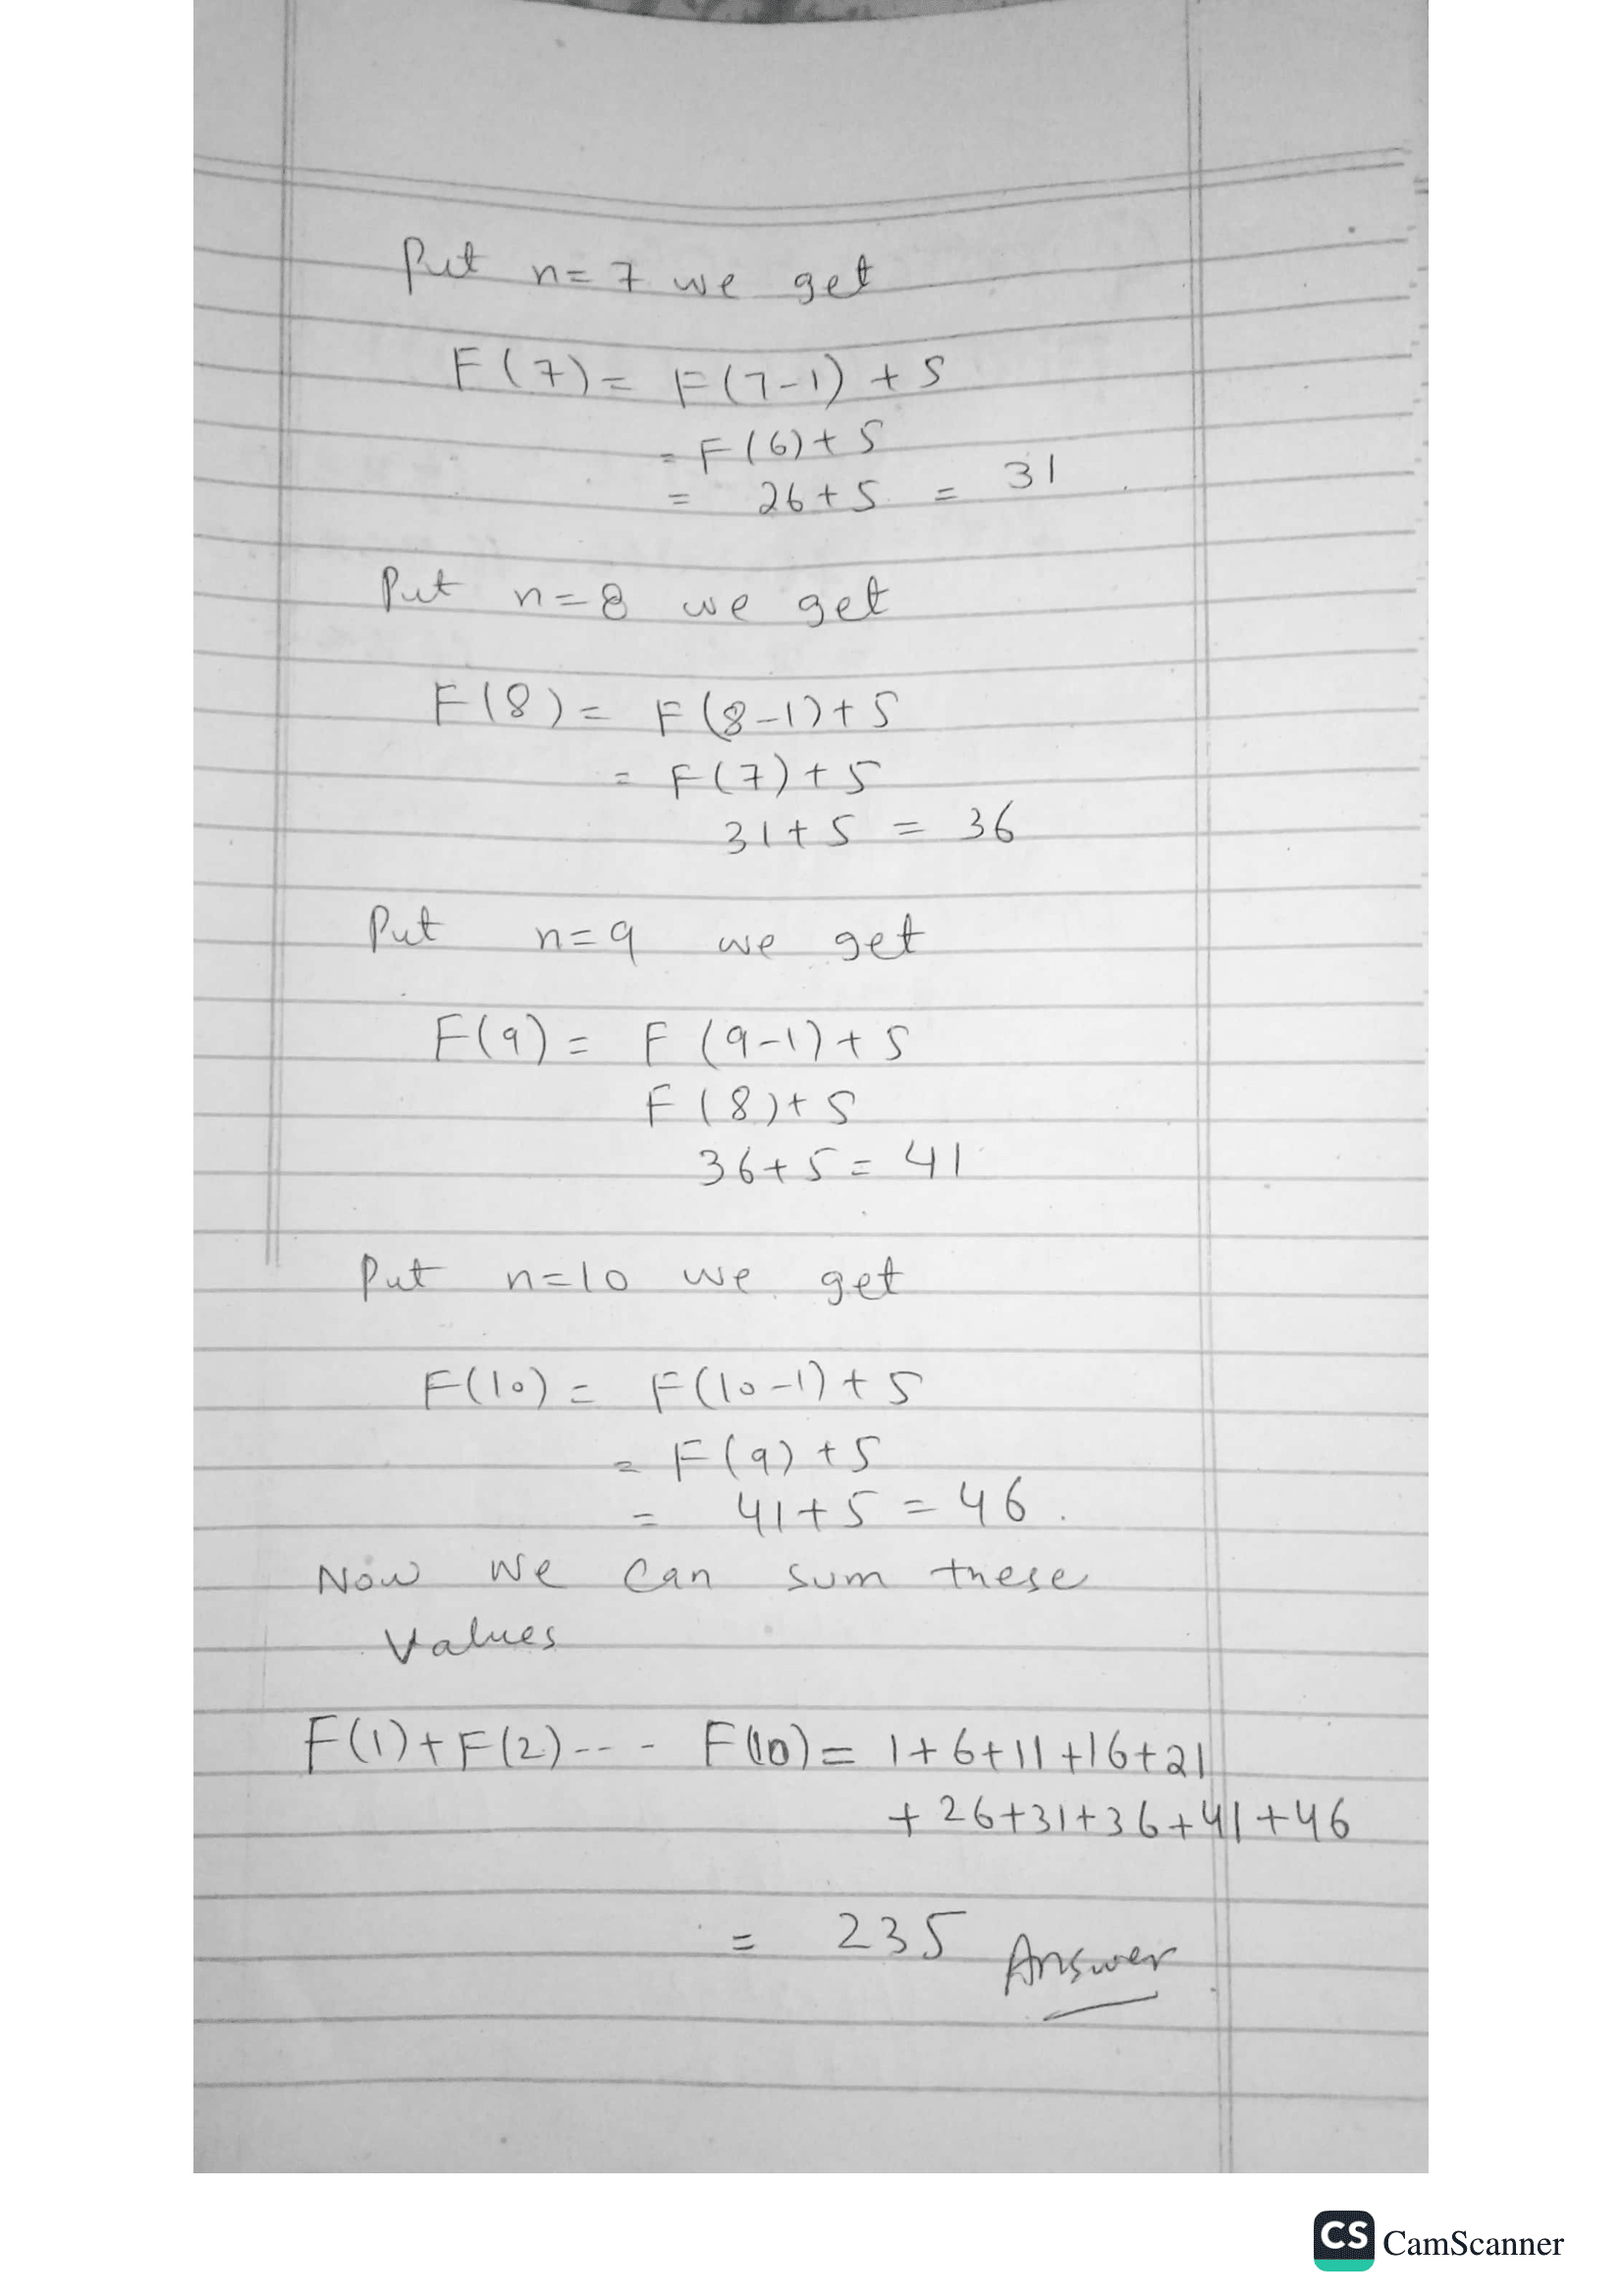 Put n=7 we get
F(7)= F(7-1)+5
= F(6)+5
= 26+5 = 31
Put n=8 we get
F(8)= F(8-1)+5
= F(7)+5
31+5 = 36
Put n=9 we get
F(9)= F(9-1)+5
F(8)+5
36+5= 41
Put n=10 we get
F(10)= F(10-1)+5
= F(9)+5
= 41+5 =46.
Now we can sum these
values
F(1)+F(2)--- F(10)= 1+6+11+16+21
+26+31+36+41+46
= 235 Answer
CS CamScanner